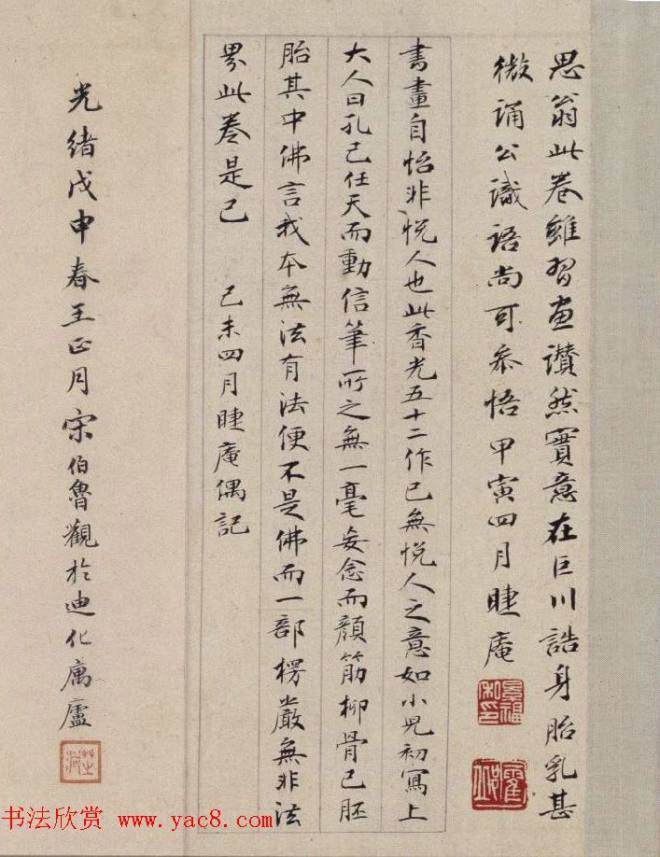 思翁此卷雖習画讃然實意在巨川誥身胎乳甚
微誦公識語尚可叅悟甲寅四月睫庵
景福私印
書畫自怡非悅人也此香光五十二作已無悅人之意如小児初寫上
大人曰孔己任天而動信筆所之無一毫妄念而顏筋柳骨已胚
胎其中佛言我本無法有法便不是佛而一部楞嚴無非法
界此卷是已 己未四月睫庵偶記
光緒戊申春王正月宋伯魯觀於迪化寓廬
芝洞
书法欣赏 www.yac8.com